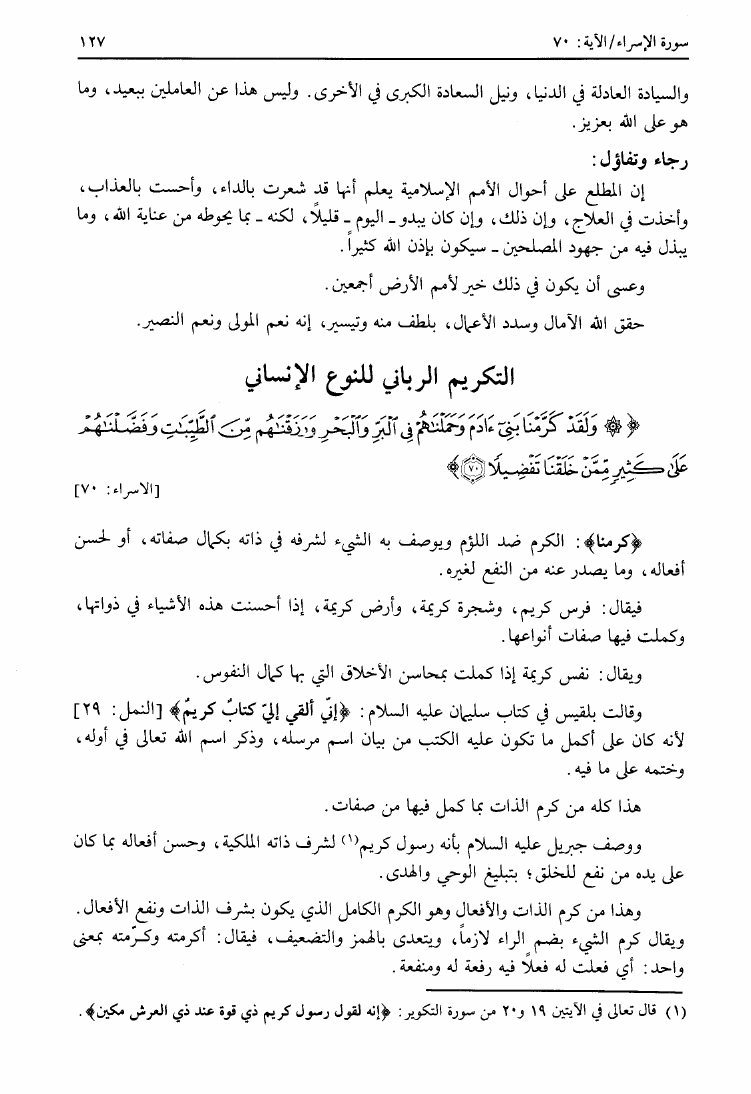 سورة الإسراء/الآية: ٧٠ ١٢٧
والسيادة العادلة في الدنيا، ونيل السعادة الكبرى في الأخرى. وليس هذا عن العاملين ببعيد، وما
هو على الله بعزيز.
رجاء وتفاؤل:
إن المطلع على أحوال الأمم الإسلامية يعلم أنها قد شعرت بالداء، وأحست بالعذاب،
وأخذت في العلاج، وإن ذلك، وإن كان يبدو ـ اليوم ـ قليلاً، لكنه ـ بما يحوطه من عناية الله، وما
يبذل فيه من جهود المصلحين ـ سيكون بإذن الله كثيراً.
وعسى أن يكون في ذلك خير لأمم الأرض أجمعين.
حقق الله الآمال وسدد الأعمال، بلطف منه وتيسير، إنه نعم المولى ونعم النصير.
التكريم الرباني للنوع الإنساني
﴿ ۞ وَلَقَدْ كَرَّمْنَا بَنِيٓ ءَادَمَ وَحَمَلْنَٰهُمْ فِي ٱلْبَرِّ وَٱلْبَحْرِ وَرَزَقْنَٰهُم مِّنَ ٱلطَّيِّبَٰتِ وَفَضَّلْنَٰهُمْ
عَلَىٰ كَثِيرٍ مِّمَّنْ خَلَقْنَا تَفْضِيلًا ٧٠﴾
[الاسراء: ٧٠]
﴿كرمنا﴾: الكرم ضد اللؤم ويوصف به الشيء لشرفه في ذاته بكمال صفاته، أو لحسن
أفعاله، وما يصدر عنه من النفع لغيره.
فيقال: فرس كريم، وشجرة كريمة، وأرض كريمة، إذا أحسنت هذه الأشياء في ذواتها،
وكملت فيها صفات أنواعها.
ويقال: نفس كريمة إذا كملت بمحاسن الأخلاق التي بها كمال النفوس.
وقالت بلقيس في كتاب سليمان عليه السلام: ﴿إنّي ألقي إليّ كتابٌ كريمٌ﴾ [النمل: ٢٩]
لأنه كان على أكمل ما تكون عليه الكتب من بيان اسم مرسله، وذكر اسم الله تعالى في أوله،
وختمه على ما فيه.
هذا كله من كرم الذات بما كمل فيها من صفات.
ووصف جبريل عليه السلام بأنه رسول كريم(١) لشرف ذاته الملكية، وحسن أفعاله بما كان
على يده من نفع للخلق؛ بتبليغ الوحي والهدى.
وهذا من كرم الذات والأفعال وهو الكرم الكامل الذي يكون بشرف الذات ونفع الأفعال.
ويقال كرم الشيء بضم الراء لازماً، ويتعدى بالهمز والتضعيف، فيقال: أكرمته وكرّمته بمعنى
واحد: أي فعلت له فعلاً فيه رفعة له ومنفعة.
(١) قال تعالى في الآيتين ١٩ و٢٠ من سورة التكوير: ﴿إنه لقول رسول كريم ذي قوة عند ذي العرش مكين﴾.